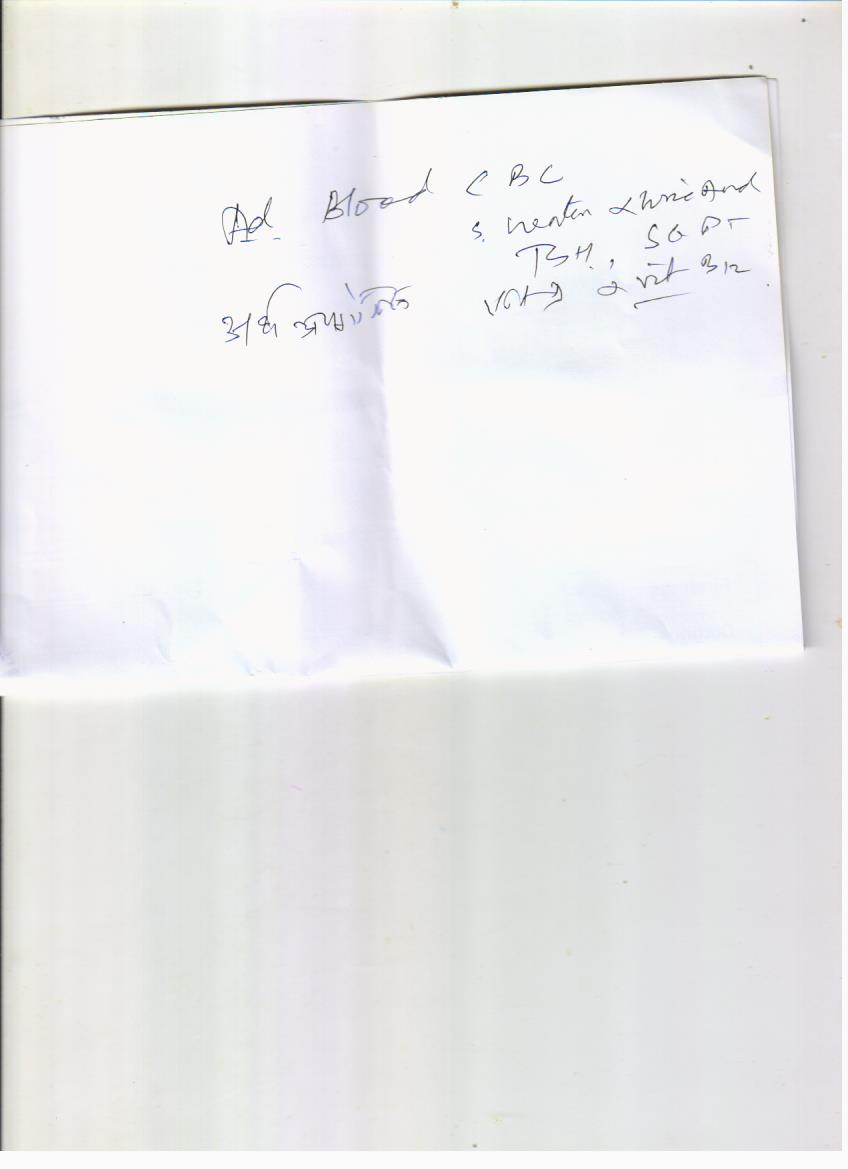 Ad. Blood CBC
S. Creatin & Uric Acid
TSH, SGPT
Vit D & Vit B12